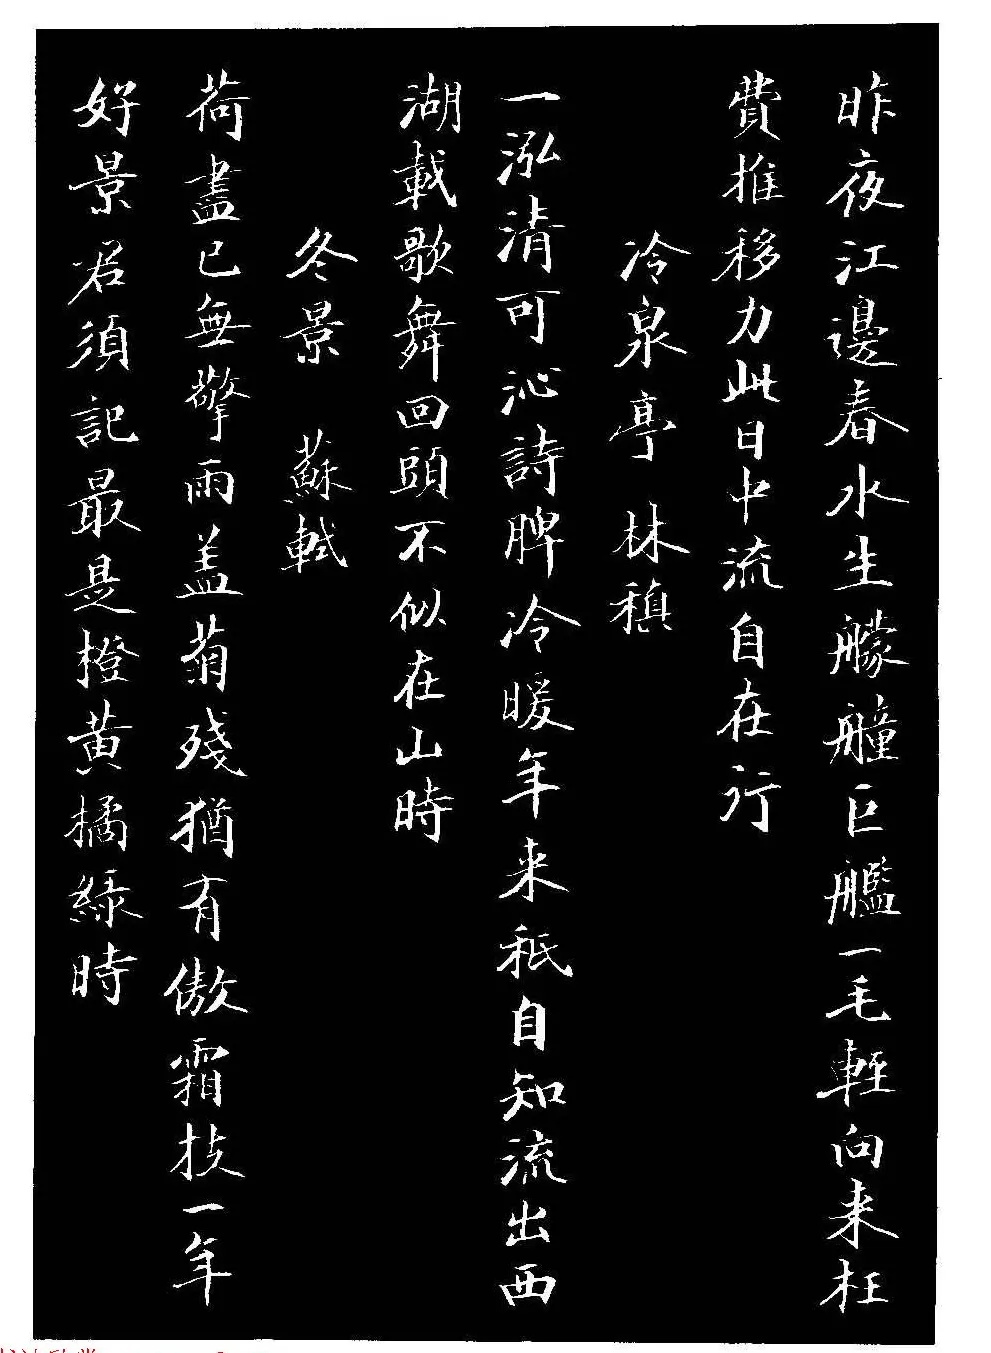 昨夜江邊春水生艨艟巨艦一毛輕向来枉
費推移力此日中流自在行
冷泉亭 林稹
一泓清可沁詩脾冷暖年来秖自知流出西
湖載歌舞回頭不似在山時
冬景 蘇軾
荷盡已無擎雨盖菊殘猶有傲霜枝一年
好景君須記最是橙黄橘緑時